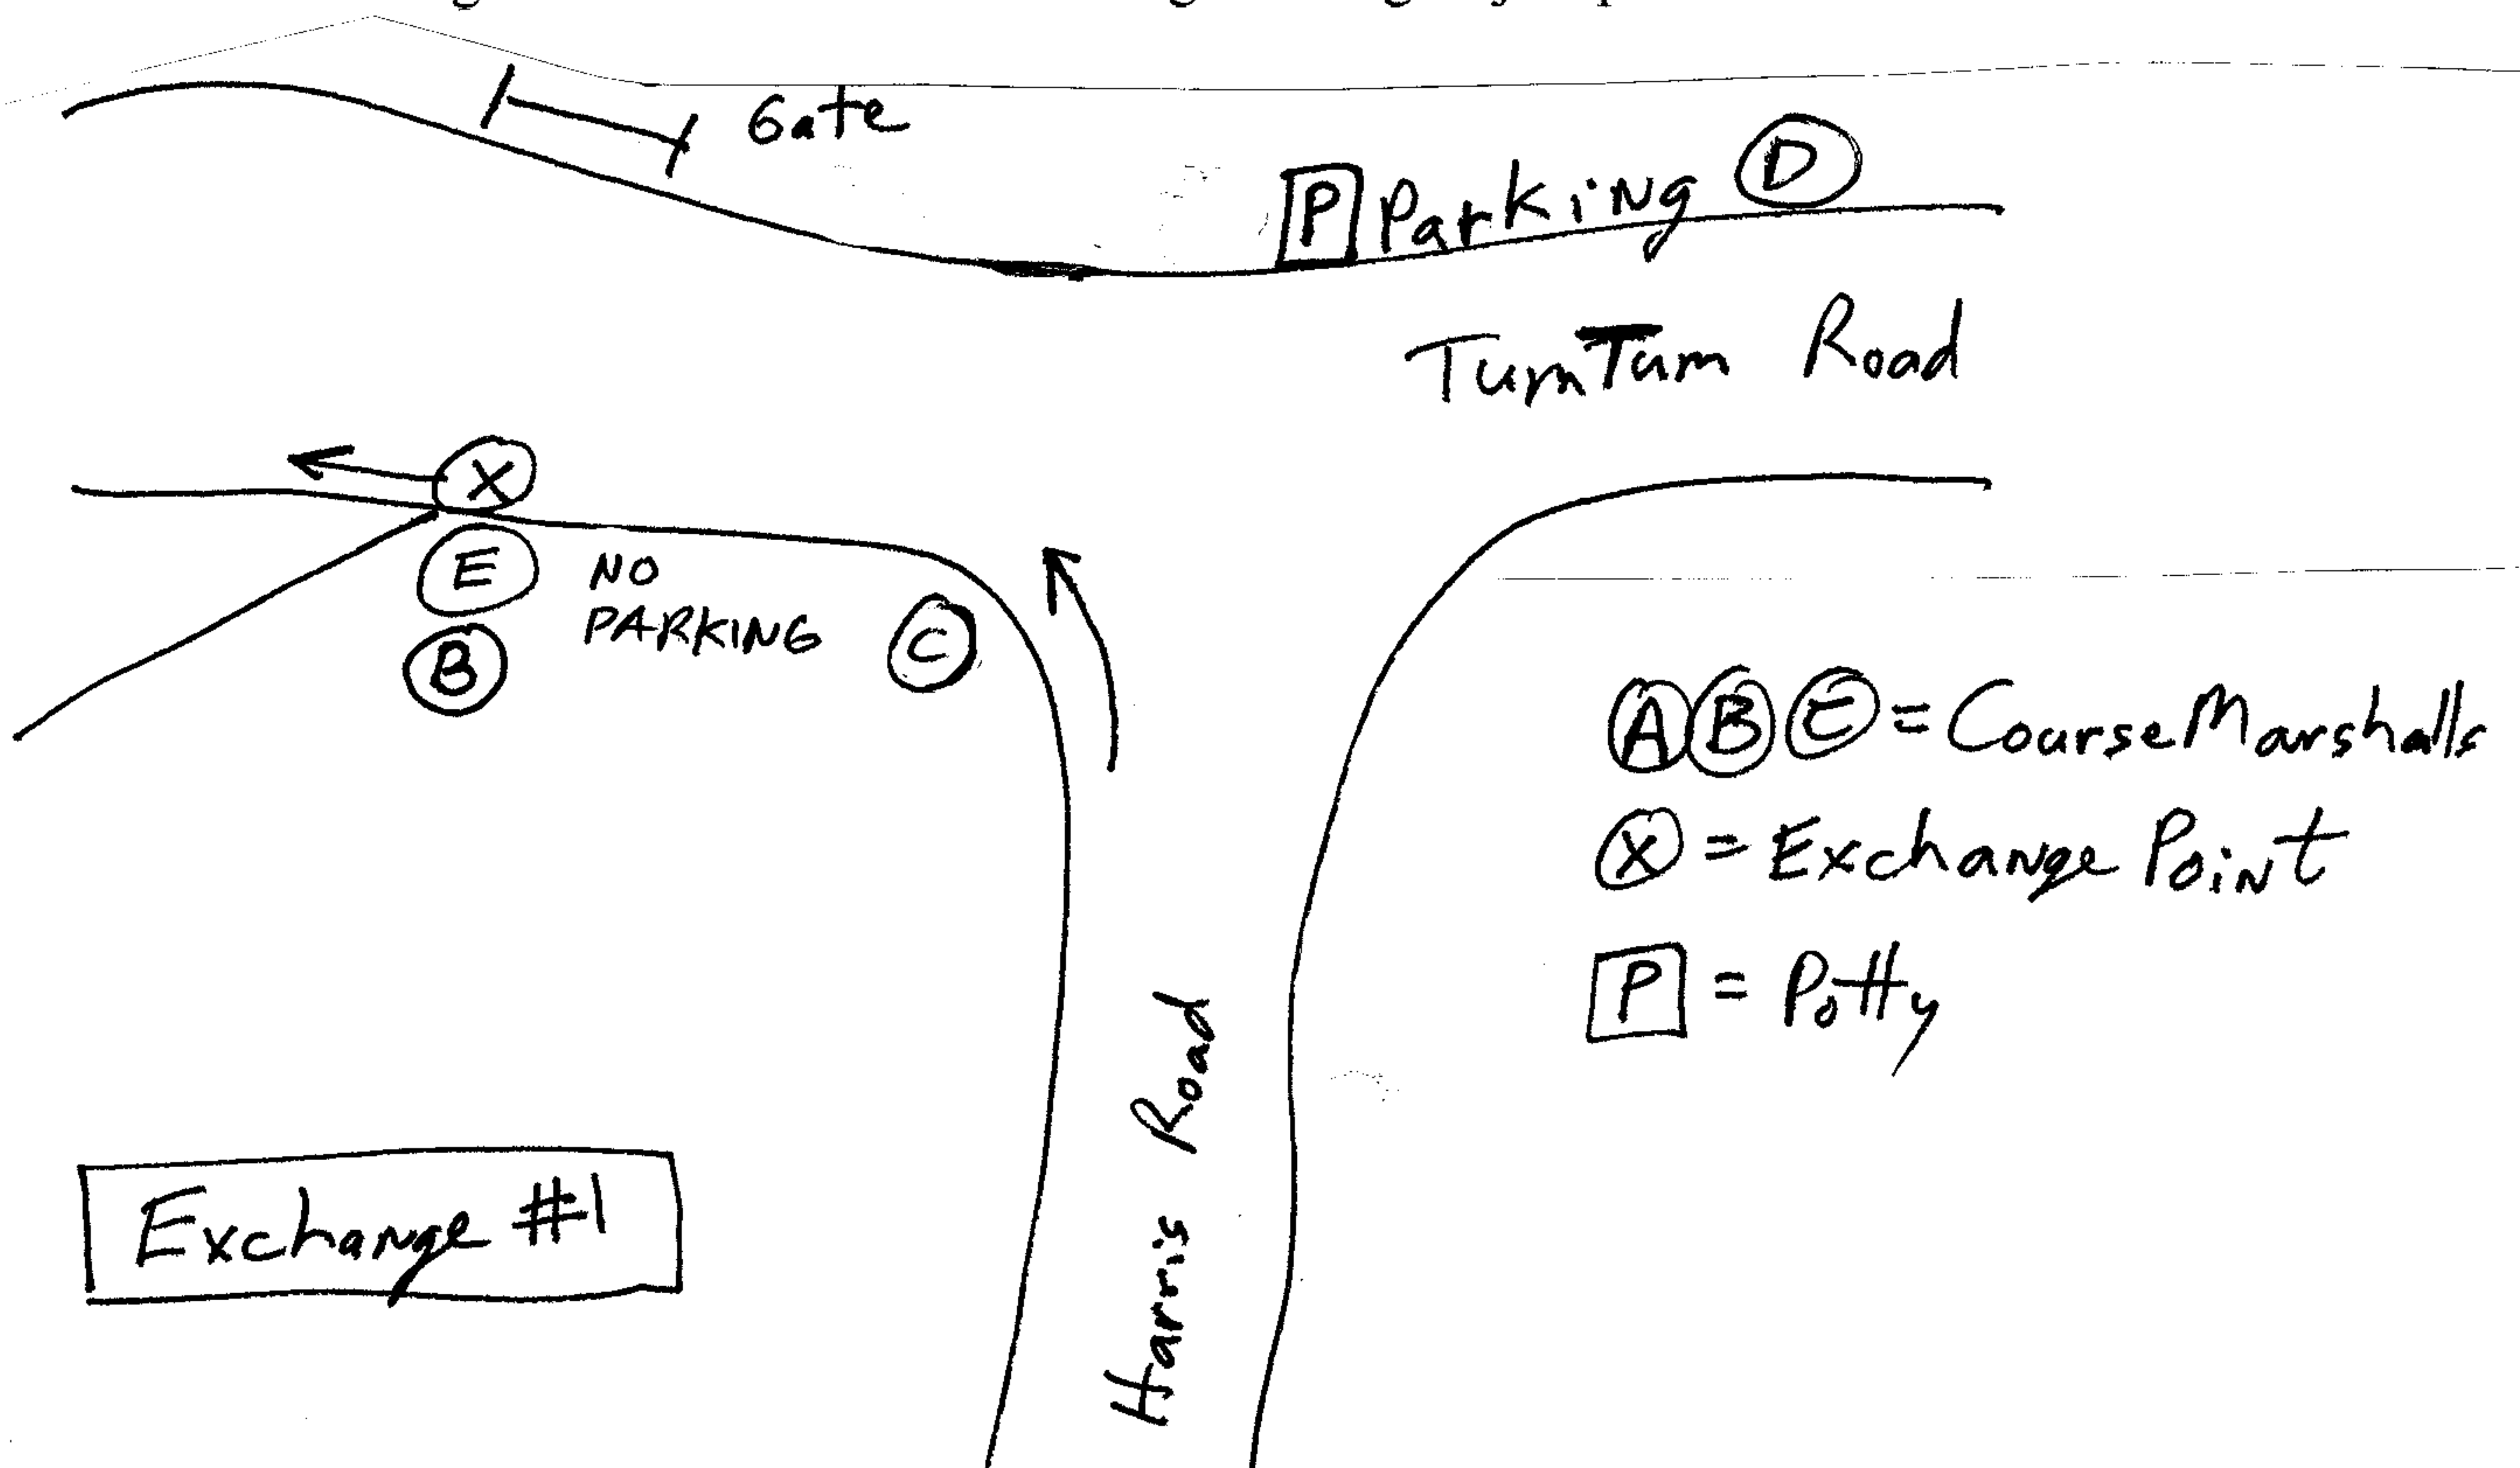 Gate
P Parking D
TumTum Road
X
E NO
PARKING C
B
A B E = Course Marshalls
X = Exchange Point
P = Potty
Harris Road
Exchange #1